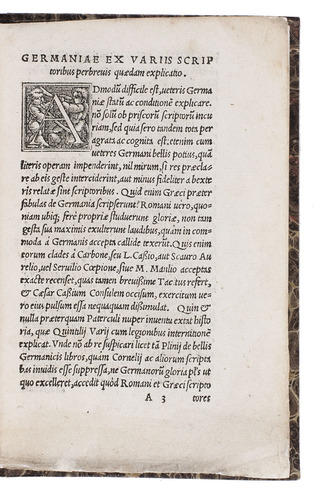 GERMANIAE EX VARIIS SCRIP
toribus perbreuis quædam explicatio.
ADmodũ difficile est, ueteris Germa
niæ statũ ac conditionẽ explicare.
nõ solũ ob priscorũ scriptorũ incu
riam, sed quia sero tandem tota per
agrata ac cognita est: etenim cum
ueteres Germani bellis potius, quã
literis operam impenderint, nil mirum, si res præcla-
re ab eis gestæ interciderint, aut minus fideliter a̓ bexte
ris relatæ sint scriptoribus. Quid enim Græci præter
fabulas de Germania scripserunt? Romani uero, quo-
niam ubiq; ferè propriæ studuerunt gloriæ, non tam
gesta sua maximis exulterunt laudibus, quàm in com-
moda à Germanis accepta callide texerũt. Quis enim
eorum clades à Carbone, seu L. Caßio, aut Scauro Au
relio, uel Seruilio Cœpione, siue M. Manlio acceptas
exacte recenset, quas tamen breuißime Tacitus refert,
& Cæsar Caßium Consulem occisum, exercitum ue-
ro eius pulsum essa nequaquam dißimulat. Quin &
nulla præterquam Paterculi nuper inuentu extat histo
ria, quæ Quintilij Varij cum legionibus internitionẽ
explicat. Vnde nõ ab re suspicari licet tã Plinij de bellis
Germanicis libros, quàm Cornelij ac aliorum scripta
bas inuidis esse suppressa, ne Germanorũ gloria pl's ut
quo excelleret, accedit quòd Romani et Græci scripto
A 3 tores